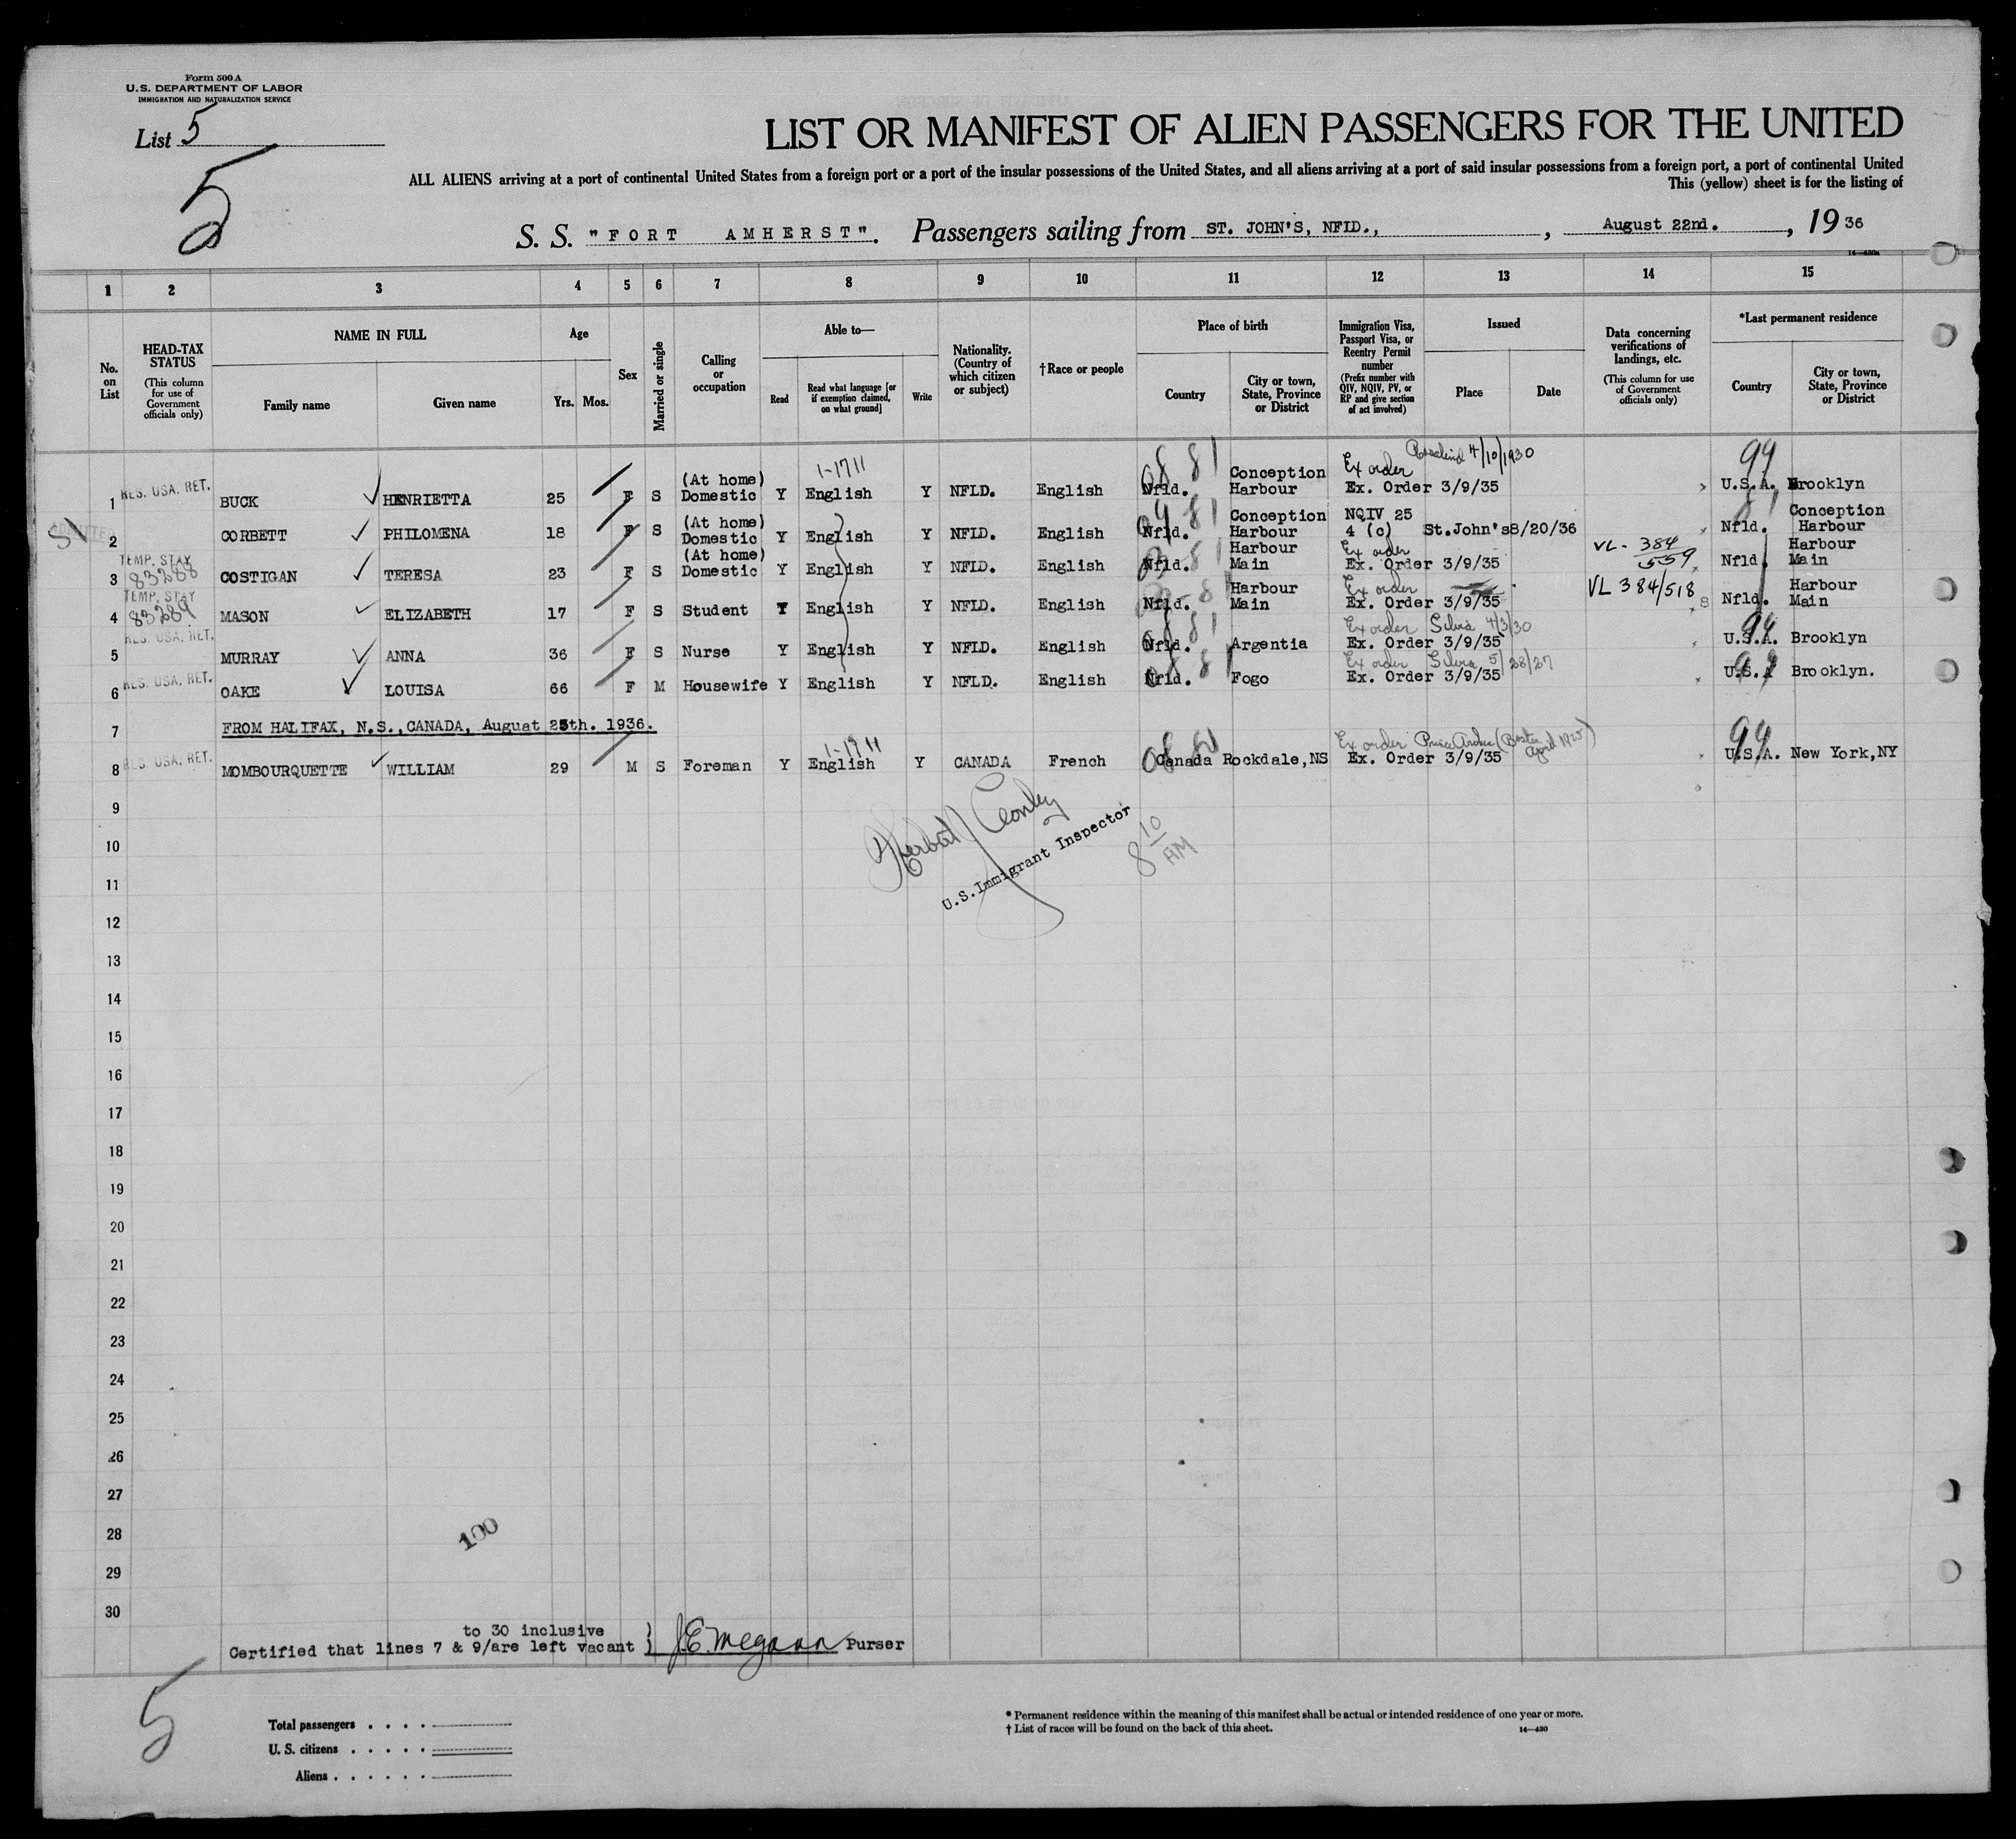 Form 500 A
U.S. DEPARTMENT OF LABOR
IMMIGRATION AND NATURALIZATION SERVICE
List 5
5
LIST OR MANIFEST OF ALIEN PASSENGERS FOR THE UNITED
ALL ALIENS arriving at a port of continental United States from a foreign port or a port of the insular possessions of the United States, and all aliens arriving at a port of said insular possessions from a foreign port, a port of continental United
This (yellow) sheet is for the listing of
S. S. "FORT AMHERST". Passengers sailing from ST. JOHN'S, NFLD., , August 22nd. , 19 36
14—430a
1 2 3 4 5 6 7 8 9 10 11 12 13 14 15
No. on List
HEAD-TAX STATUS
(This column for use of Government officials only)
NAME IN FULL
Family name
Given name
Age
Yrs. Mos.
Sex
Married or single
Calling or occupation
Able to—
Read
Read what language [or if exemption claimed, on what ground]
Write
Nationality. (Country of which citizen or subject)
†Race or people
Place of birth
Country
City or town, State, Province or District
Immigration Visa, Passport Visa, or Reentry Permit number
(Prefix number with QIV, NQIV, PV, or RP and give section of act involved)
Issued
Place
Date
Data concerning verifications of landings, etc.
(This column for use of Government officials only)
*Last permanent residence
Country
City or town, State, Province or District
1-1711 881 Ex order Rosalind 4/10/1930 99
1 RES. USA. RET. BUCK HENRIETTA 25 F S (At home) Domestic Y English Y NFLD. English Nfld. Conception Harbour Ex. Order 3/9/35 U.S.A. Brooklyn
2 CORBETT PHILOMENA 18 F S (At home) Domestic Y English Y NFLD. English Nfld. Conception Harbour NQIV 25 4 (c) St.John's 8/20/36 Nfld. Conception Harbour
TEMP. STAY Ex order VL- 384/559
3 83288 COSTIGAN TERESA 23 F S (At home) Domestic Y English Y NFLD. English Nfld. Harbour Main Ex. Order 3/9/35 Nfld. Harbour Main
TEMP. STAY Ex order VL 384/518
4 83289 MASON ELIZABETH 17 F S Student Y English Y NFLD. English Nfld. Harbour Main Ex. Order 3/9/35 Nfld. Harbour Main
RES. USA. RET. Ex order Silvia 4/3/30 99
5 MURRAY ANNA 36 F S Nurse Y English Y NFLD. English Nfld. Argentia Ex. Order 3/9/35 U.S.A. Brooklyn
Ex order Silvia 5/28/27 99
6 RES. USA. RET. OAKE LOUISA 66 F M Housewife Y English Y NFLD. English Nfld. Fogo Ex. Order 3/9/35 U.S.A Brooklyn.
7 FROM HALIFAX, N.S.,CANADA, Auguat 25th. 1936.
1-1711 Ex order Prince Arthur (Boston April 1925) 99
8 RES. USA. RET. MOMBOURQUETTE WILLIAM 29 M S Foreman Y English Y CANADA French Canada Rockdale,NS Ex. Order 3/9/35 U.S.A. New York,NY
9
U.S.Immigrant Inspector
8 10 AM
10
11
12
13
14
15
16
17
18
19
20
21
22
23
24
25
26
27
28
100
29
30
to 30 inclusive
Certified that lines 7 & 9/are left vacant } Purser
5
Total passengers . . . .
U. S. citizens . . . . .
Aliens . . . . . .
* Permanent residence within the meaning of this manifest shall be actual or intended residence of one year or more.
† List of races will be found on the back of this sheet.
14—430